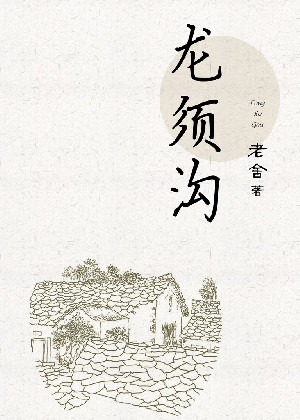 龙须沟
Long
Xu
Gou
老舍 著